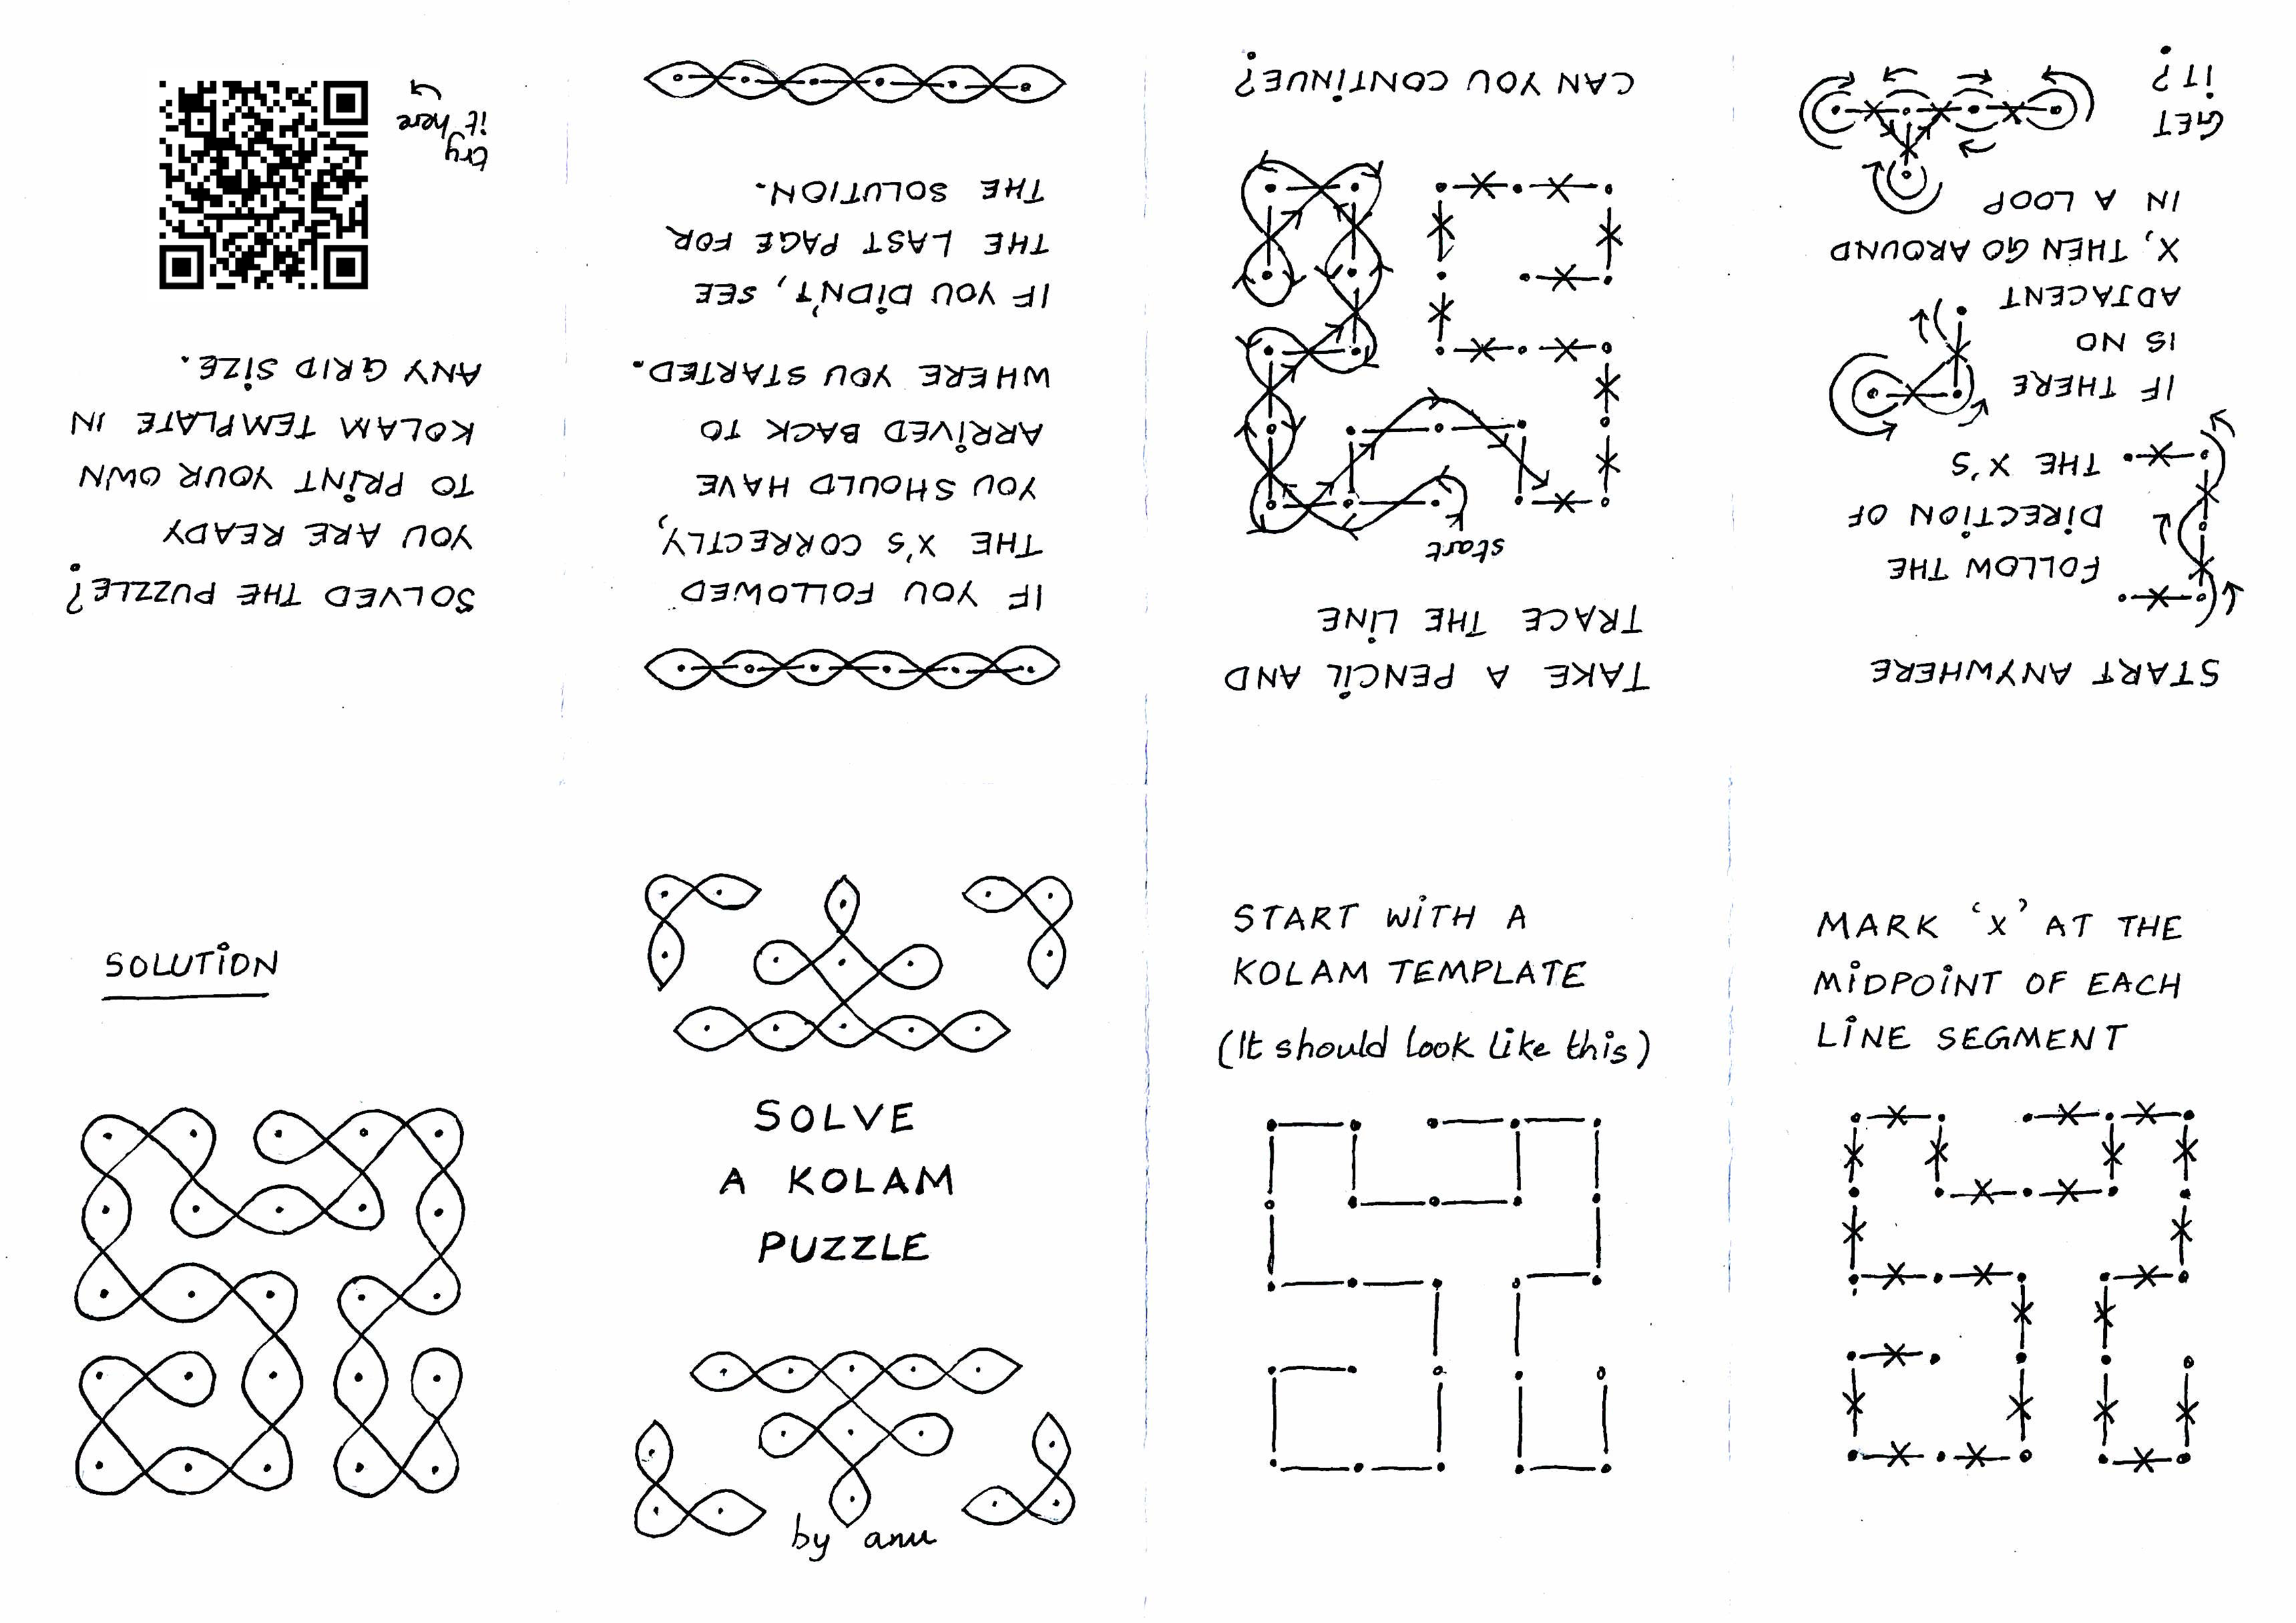 SOLVE
A KOLAM
PUZZLE
by anu
START WITH A
KOLAM TEMPLATE
(It should look like this)
MARK ‘X’ AT THE
MIDPOINT OF EACH
LINE SEGMENT
START ANYWHERE
FOLLOW THE
DIRECTION OF
THE X'S
IF THERE
IS NO
ADJACENT
X, THEN GO AROUND
IN A LOOP
GET
IT?
TAKE A PENCIL AND
TRACE THE LINE
start
CAN YOU CONTINUE?
IF YOU FOLLOWED
THE X'S CORRECTLY,
YOU SHOULD HAVE
ARRIVED BACK TO
WHERE YOU STARTED.
IF YOU DIDN'T, SEE
THE LAST PAGE FOR
THE SOLUTION.
SOLVED THE PUZZLE?
YOU ARE READY
TO PRINT YOUR OWN
KOLAM TEMPLATE IN
ANY GRID SIZE.
try
it here
SOLUTION